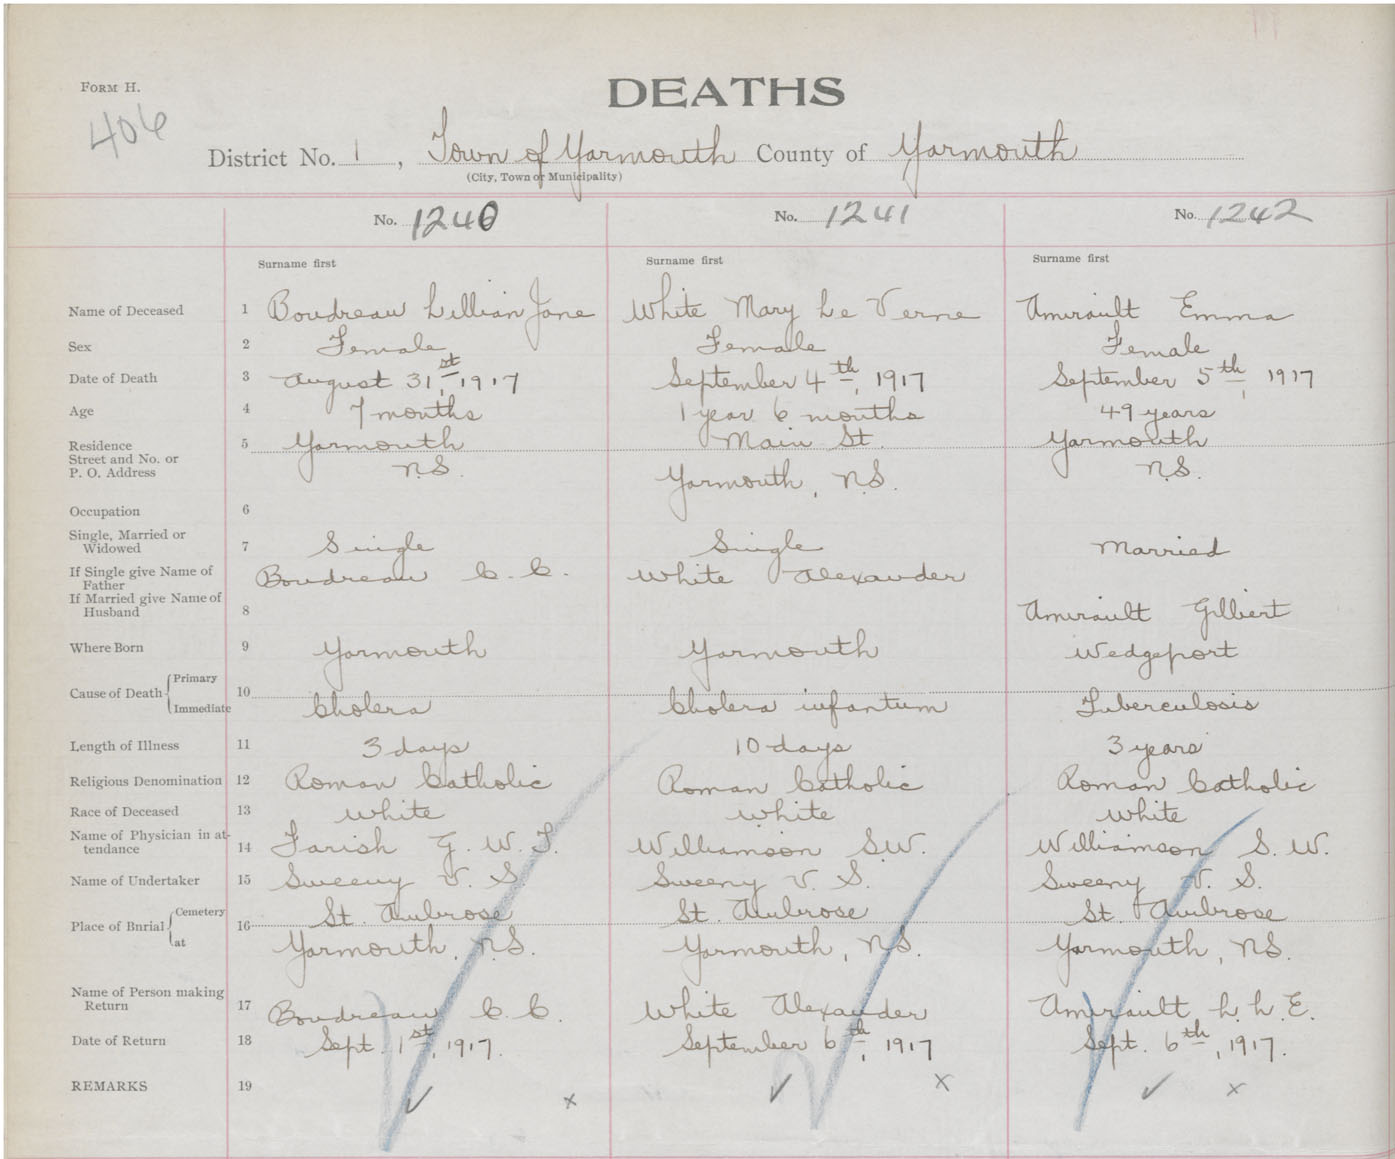 FORM H.
DEATHS
406
District No. 1, Town of Yarmouth County of Yarmouth
(City, Town or Municipality)
No. 1240 No. 1241 No. 1242
Surname first Surname first Surname first
Name of Deceased 1 Boudreau Lillian Jane White Mary Le Verne Amirault Emma
Sex 2 Female Female Female
Date of Death 3 August 31st, 1917 September 4th, 1917 September 5th, 1917
Age 4 7 months 1 year 6 months 49 years
Residence 5 Yarmouth Main St. Yarmouth
Street and No. or
P. O. Address N.S. Yarmouth, N.S. N.S.
Occupation 6
Single, Married or
Widowed 7 Single Single Married
If Single give Name of
Father Boudreau C. C. White Alexander
If Married give Name of
Husband 8 Amirault Gilbert
Where Born 9 Yarmouth Yarmouth Wedgeport
Primary
Cause of Death 10
Immediate Cholera Cholera infantum Tuberculosis
Length of Illness 11 3 days 10 days 3 years
Religious Denomination 12 Roman Catholic Roman Catholic Roman Catholic
Race of Deceased 13 White White White
Name of Physician in at-
tendance 14 Farish G. W. T. Williamson S.W. Williamson S. W.
Name of Undertaker 15 Sweeny V. S. Sweeny V. S. Sweeny V. S.
Cemetery St. Ambrose St. Ambrose St. Ambrose
Place of Bnrial 16
at Yarmouth, N.S. Yarmouth, N.S. Yarmouth, N.S.
Name of Person making
Return 17 Boudreau C. C. White Alexander Amirault L. L. E.
Date of Return 18 Sept. 1st, 1917. September 6th, 1917 Sept. 6th, 1917.
REMARKS 19 ✓ x ✓ x ✓ x